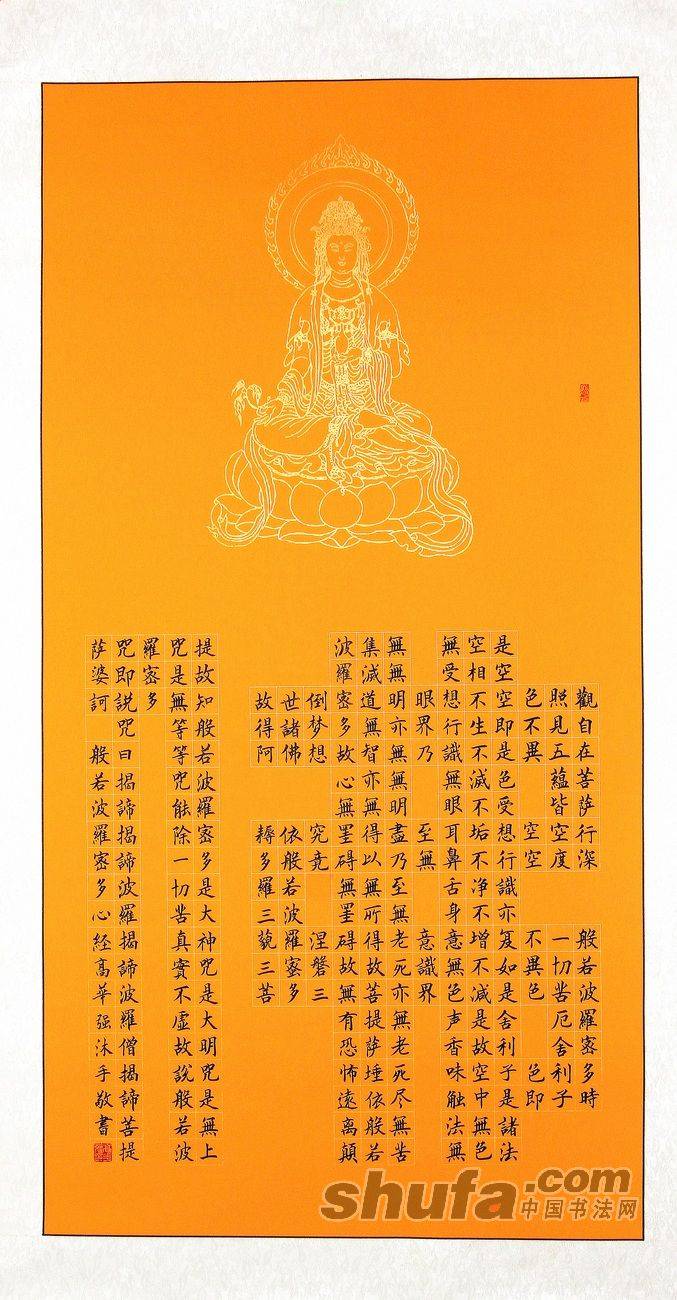 觀自在菩薩行深 般若波羅密多時
照見五蘊皆空度 一切苦厄舍利子
色不異 空空 不異色 色即
是空空即是色受想行識亦复如是舍利子是諸法
空相不生不滅不垢不净不增不減是故空中無色
無受想行識無眼耳鼻舌身意無色声香味触法無
眼界乃 至無 意識界
無無明亦無無明盡乃至無老死亦無老死尽無苦
集滅道無智亦無得以無所得故菩提薩埵依般若
波羅密多故心無罣碍無罣碍故無有恐怖遠离顛
倒梦想 究竟 涅磐三
世諸佛 依般若波羅密多
故得阿 耨多羅三藐三菩
提故知般若波羅密多是大神咒是大明咒是無上
咒是無等等咒能除一切苦真實不虛故說般若波
羅密多
咒即説咒曰揭諦揭諦波羅揭諦波羅僧揭諦菩提
萨婆訶 般若波羅密多心經高華强沐手敬書
shufa.com
中国书法网